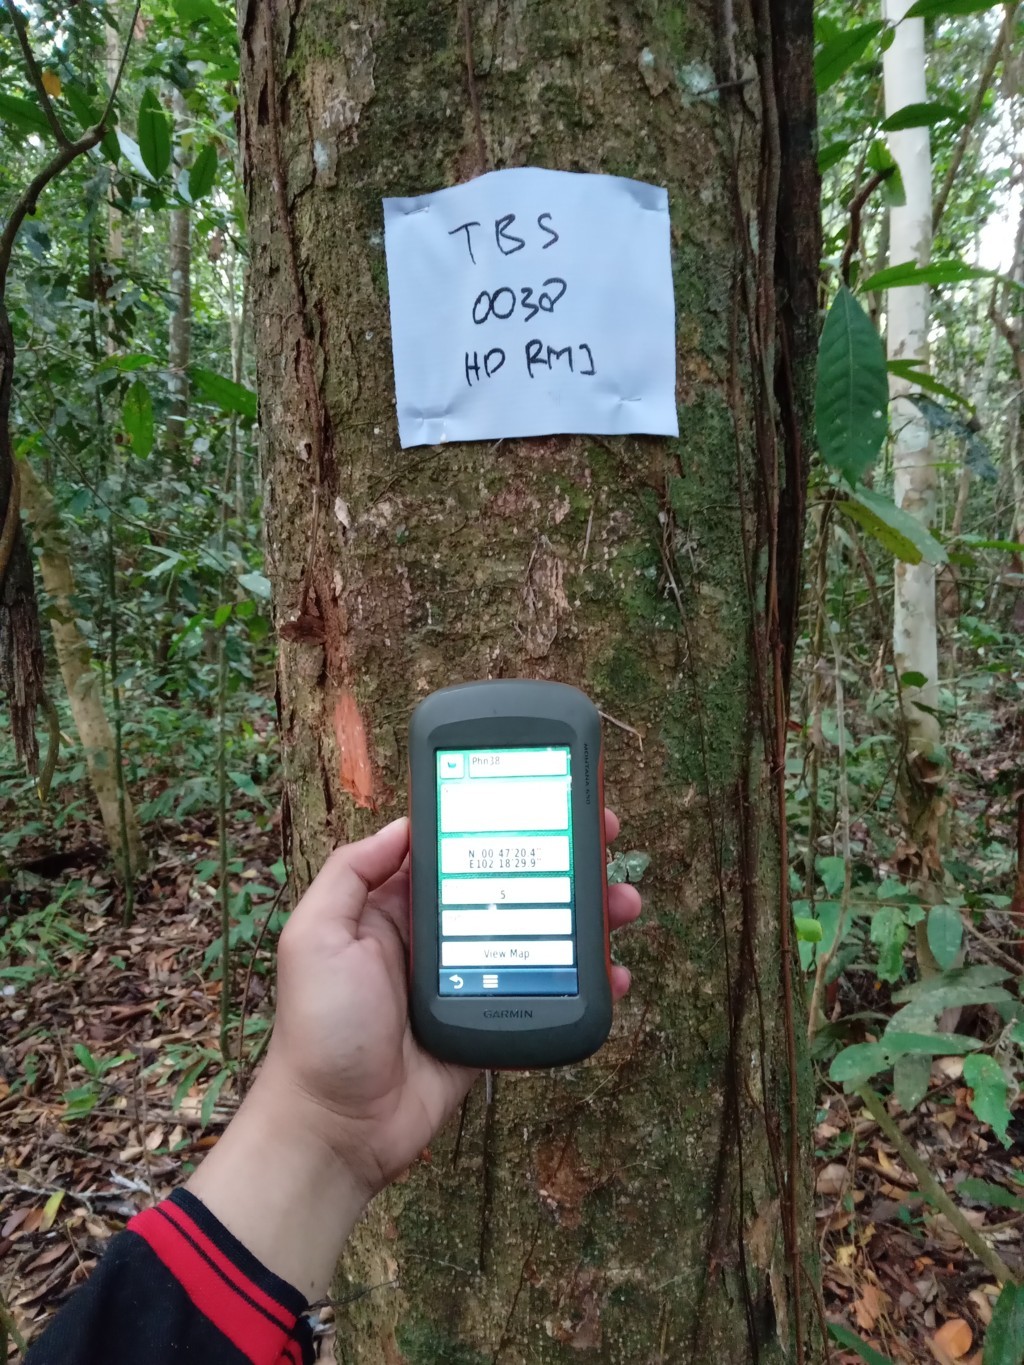 TBS
0038
HD RMJ
Phn38
N 00 47'20.4"
E102 18'29.9"
5
View Map
GARMIN